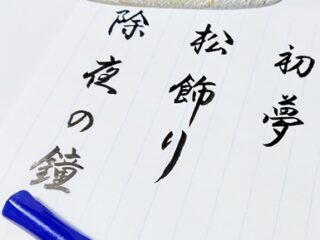 初夢
松飾り
除夜の鐘